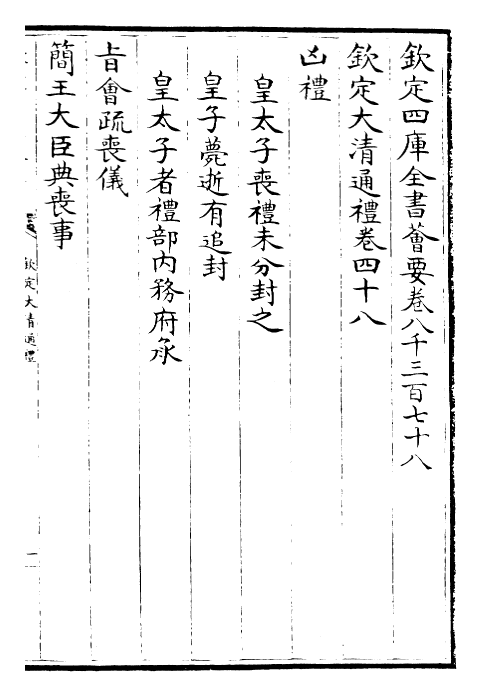 欽定四庫全書薈要卷八千三百七十八
欽定大清通禮卷四十八
凶禮
皇太子喪禮未分封之
皇子薨逝有追封
皇太子者禮部內務府承
㫖會疏喪儀
簡王大臣典喪事
欽定大清通禮
一